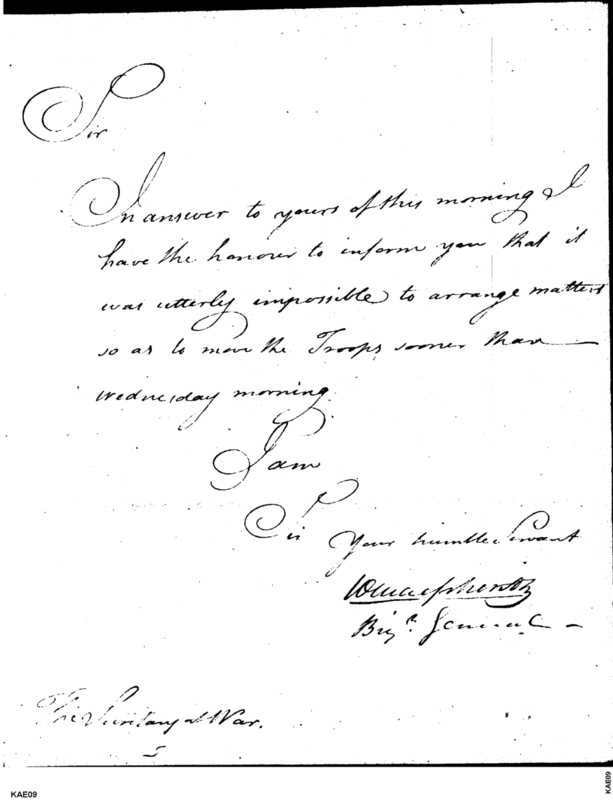 Sir
In answer to yours of this morning I
have the honour to inform you that it
was utterly impossible to arrange matters
so as to move the Troops sooner than
Wednesday morning.
I am
Sir Your humble Servant
Wm Macpherson
Brigr. General
The Secretary at War.
KAE09
KAE09